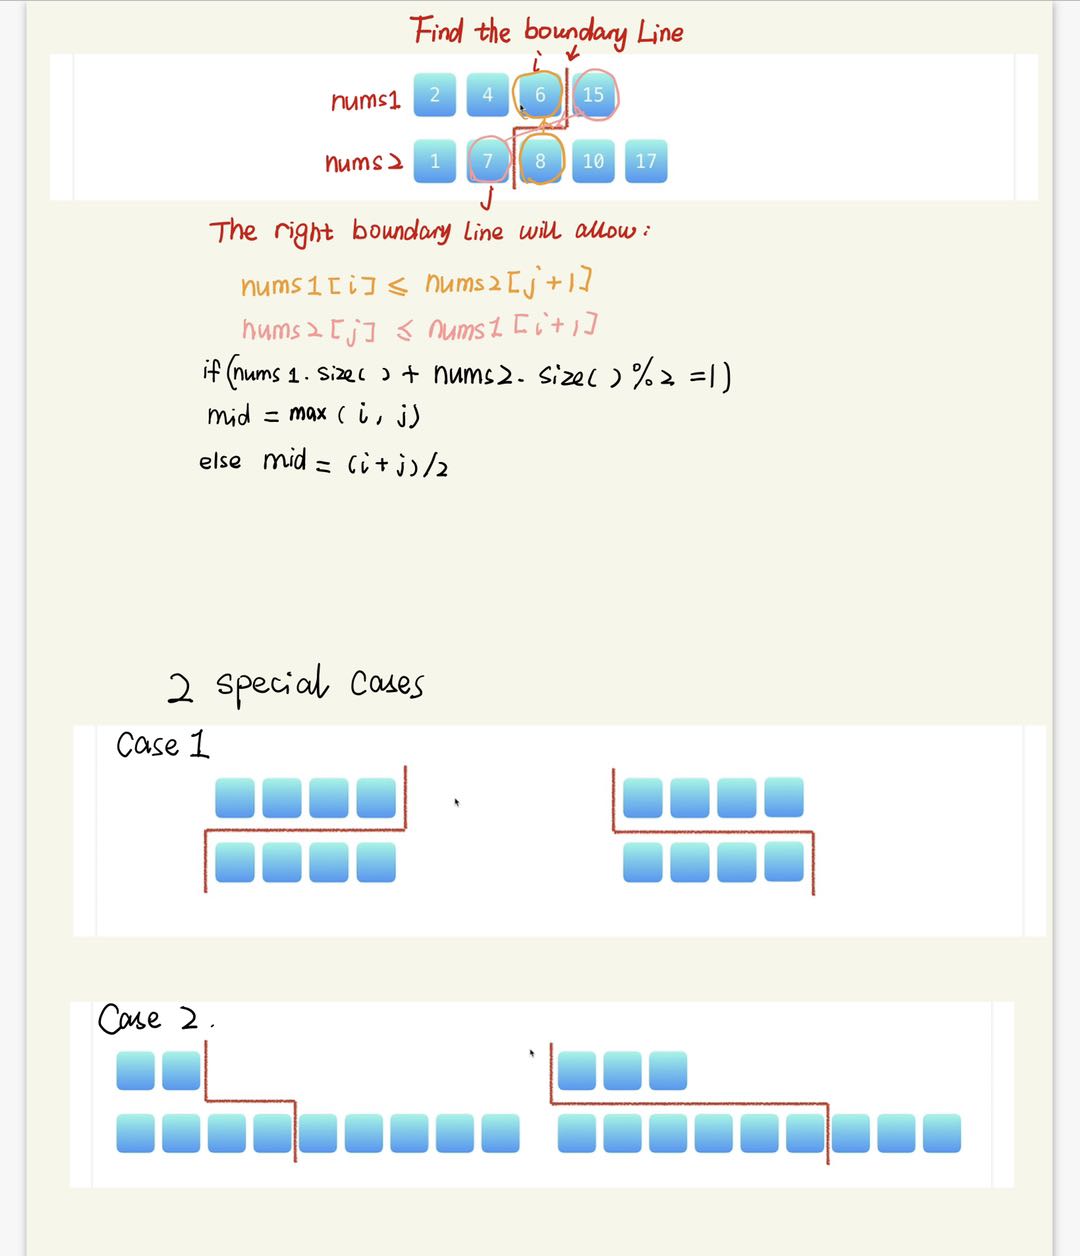 Find the boundary Line
i
nums1 2 4 6 15
nums2 1 7 8 10 17
j
The right boundary Line will allow:
nums1[i] ≤ nums2[j+1]
nums2[j] ≤ nums1[i+1]
if(nums1.size() + nums2.size()%2 =1)
mid = max(i, j)
else mid = (i+j)/2
2 special cases
Case 1
Case 2.